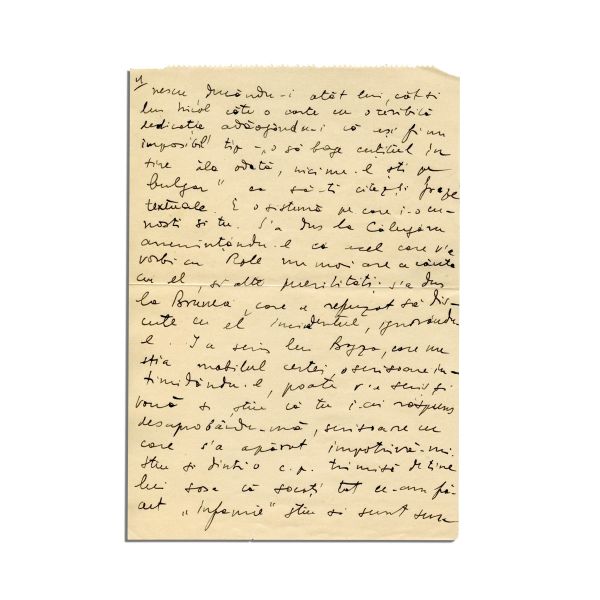 4/
nescu ducându-i atât lui, cât și
lui Nicol câte o carte cu o teribilă
dedicație adăogându-i că ești un
imposibil tip - „o să bage cuțitul în
tine ăla odată, nici nu-l știi pe
bulgar" ca să-ți citez fraze
textuale. E o sistemă pe care i-o cu-
noști și tu. S'a dus la Călugăru
amenințându-l că acel care v'a
vorbi cu Roll nu mai are a căuta
cu el, și alte puerilități; s'a dus
la Brunea, care a refuzat să dis-
cute cu el incidentul, ignorându-
l. I-a scris lui Bogza, care nu
știa mobilul certei, o scrisoare in-
timidându-l, poate v'a scris și
vouă și știu că tu i-ai răspuns
desaprobându-mă, scrisoare cu
care s'a apărat împotrivă-mi.
Știu și dintr'o c.p. trimisă de tine
lui Sașa că socoți tot ce-am fă-
cut „infamie" știu și sunt